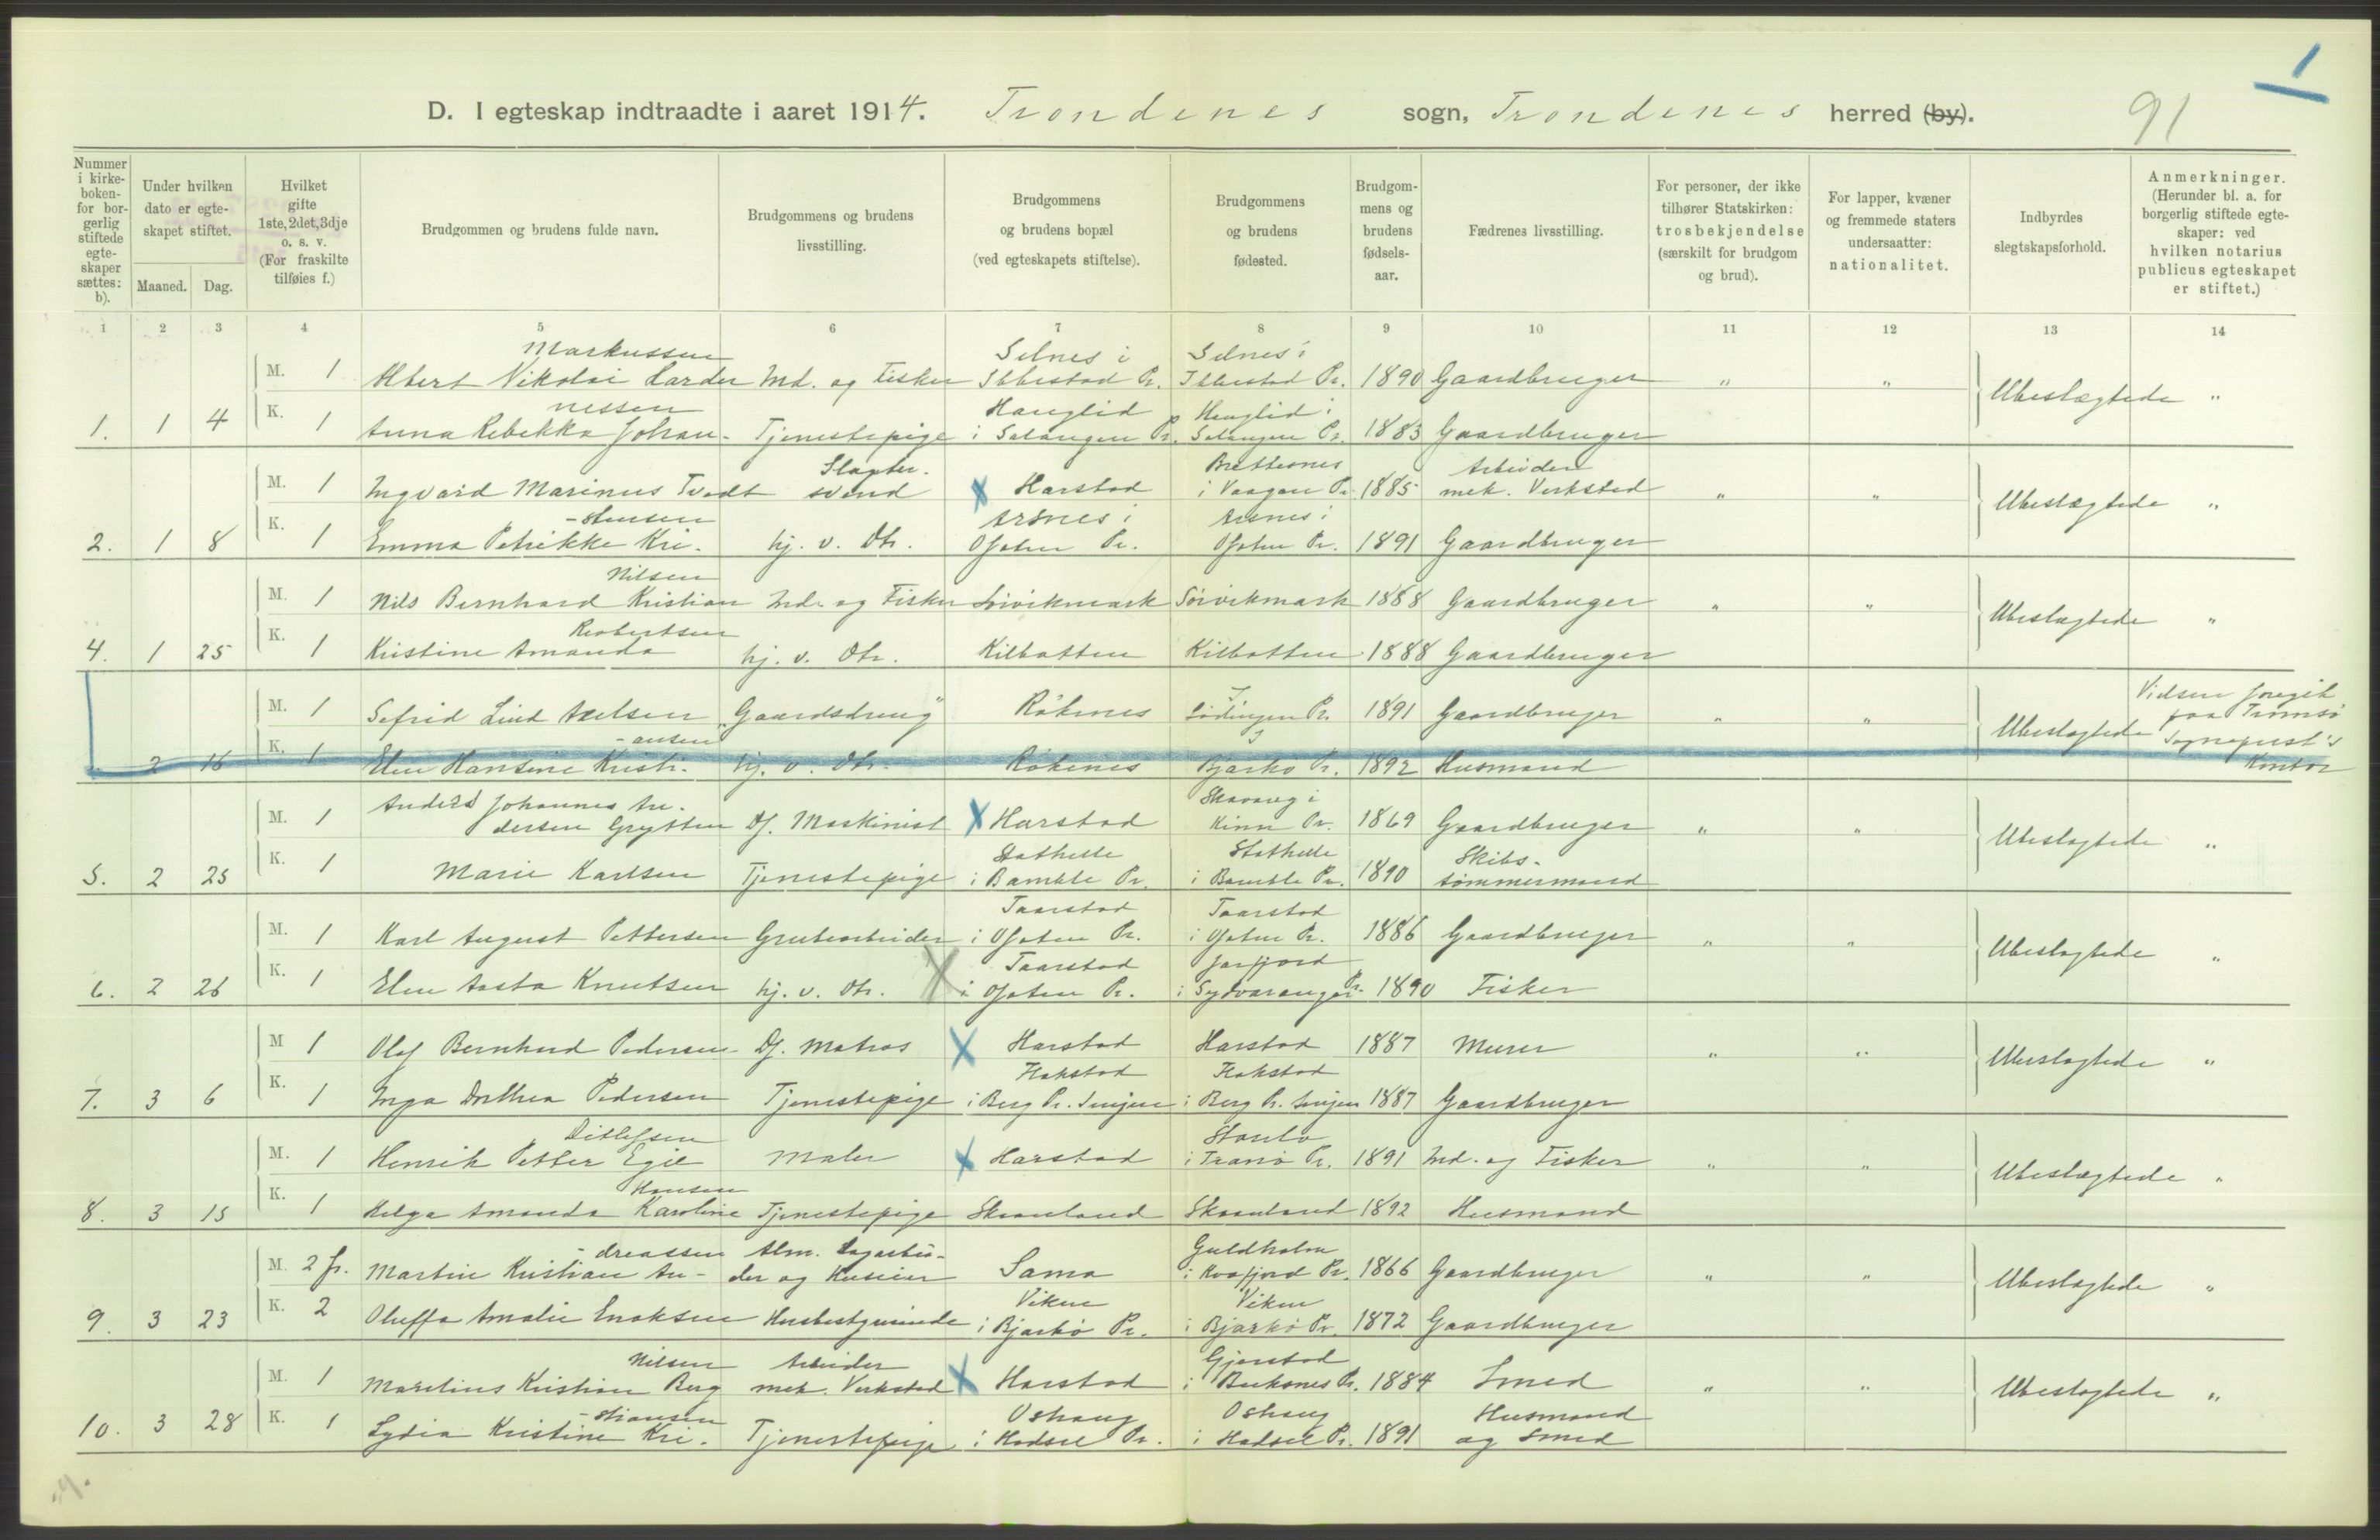 1
91
D. I egteskap indtraadte i aaret 1914. Trondenes sogn, Trondenes herred (by).
Nummer i kirkeboken- for borgerlig stiftede egteskaper sættes: b).
Under hvilken dato er egteskapet stiftet.
Maaned. Dag.
Hvilket gifte 1ste, 2det, 3dje o. s. v. (For fraskilte tilføies f.)
Brudgommen og brudens fulde navn.
Brudgommens og brudens livsstilling.
Brudgommens og brudens bopæl (ved egteskapets stiftelse).
Brudgommens og brudens fødested.
Brudgommens og brudens fødselsaar.
Fædrenes livsstilling.
For personer, der ikke tilhører Statskirken: trosbekjendelse (særskilt for brudgom og brud).
For lapper, kvæner og fremmede staters undersaatter: nationalitet.
Indbyrdes slegtskapsforhold.
Anmerkninger. (Herunder bl. a. for borgerlig stiftede egteskaper: ved hvilken notarius publicus egteskapet er stiftet.)
1 2 3 4 5 6 7 8 9 10 11 12 13 14
Markussen Selnes i Selnes i
M. 1 Albert Nikolai Ind. og Fisker Ibbestad Pr. Ibbestad Pr. 1890 Gaardbruger " " Ubeslægtede "
nessen Hanglid Hanglid i
1. 1 4 K. 1 Anna Rebekka Johan- Tjenestepige i Salangen Pr. Salangen Pr. 1883 Gaardbruger
Slagter- Brettesnes Arbeider
M. 1 Ingvard Marinus Tvedt svend X Harstad i Vaagan Pr. 1885 mek. Verksted " " Ubeslægtede "
-stensen Arsnes i Arsnes i
2. 1 8 K. 1 Emma Petrikke Kri- hj. v. Dtr. Ofoten Pr. Ofoten Pr. 1891 Gaardbruger
Nilsen
M. 1 Nils Bernhard Kristian Ind. og Fisker Sørvikmark Sørvikmark 1888 Gaardbruger " " Ubeslægtede "
Robertsen
4. 1 25 K. 1 Kristine Amanda hj. v. Dtr. Kilbotten Kilbotten 1888 Gaardbruger
M. 1 Sefrid Lind Axelsen "Gaardsdreng" Røkenes Lødingen Pr. 1891 Gaardbruger " " Ubeslægtede Vielsen foregik paa Tromsø Sogneprest's Kontor
-ansen
2 16 K. 1 Elen Hansine Kristi- hj. v. Dtr. Røkenes Bjarkø Pr. 1892 Husmand
Anders Johannes An- i
M. 1 dersen Grytten Df. Maskinist X Harstad Kinn Pr. 1869 Gaardbruger " " Ubeslægtede "
Stathelle Stathelle Skibs-
5. 2 25 K. 1 Marie Karlsen Tjenestepige i Bamble Pr. i Bamble Pr. 1890 tømmermand
Taarstad Taarstad
M. 1 Karl August Pettersen Grubearbeider i Ofoten Pr. i Ofoten Pr. 1886 Gaardbruger " " Ubeslægtede "
Taarstad Jarfjord
6. 2 26 K. 1 Elen Aasta Knutsen hj. v. Dtr. X i Ofoten Pr. i Sydvaranger Pr. 1890 Fisker
M 1 Olaf Bernhard Pedersen Df. Matros X Harstad Harstad 1887 Murer " " Ubeslægtede "
Flakstad Flakstad
7. 3 6 K. 1 Inga Dorthea Pedersen Tjenestepige i Berg Pr. Senjen i Berg Pr. Senjen 1887 Gaardbruger
Ditlefsen
M. 1 Henrik Petter Egil Maler X Harstad i Tranø Pr. 1891 Ind. og Fisker " " Ubeslægtede "
Hansen
8. 3 15 K. 1 Helga Amanda Karoline Tjenestepige Skaanland Skaanland 1892 Husmand
-dreassen Alm. Dagarbei- Guldholm
M. 2 fr. Martin Kristian An- der og Kusein Sama i Kvæfjord Pr. 1866 Gaardbruger " " Ubeslægtede "
Viken Viken
9. 3 23 K. 2 Oluffa Amalie Enoksen Husbestyrerinde i Bjarkø Pr. i Bjarkø Pr. 1872 Gaardbruger
Nilsen Arbeider Gjerstad
M. 1 Marelius Kristian Berg mek. Verksted X Harstad i Buksnes Pr. 1884 Smed " " Ubeslægtede "
-stiansen Oshaug Oshaug Husmand
10. 3 28 K. 1 Lydia Kristine Kri- Tjenestepige i Hadsel Pr. i Hadsel Pr. 1891 og Smed